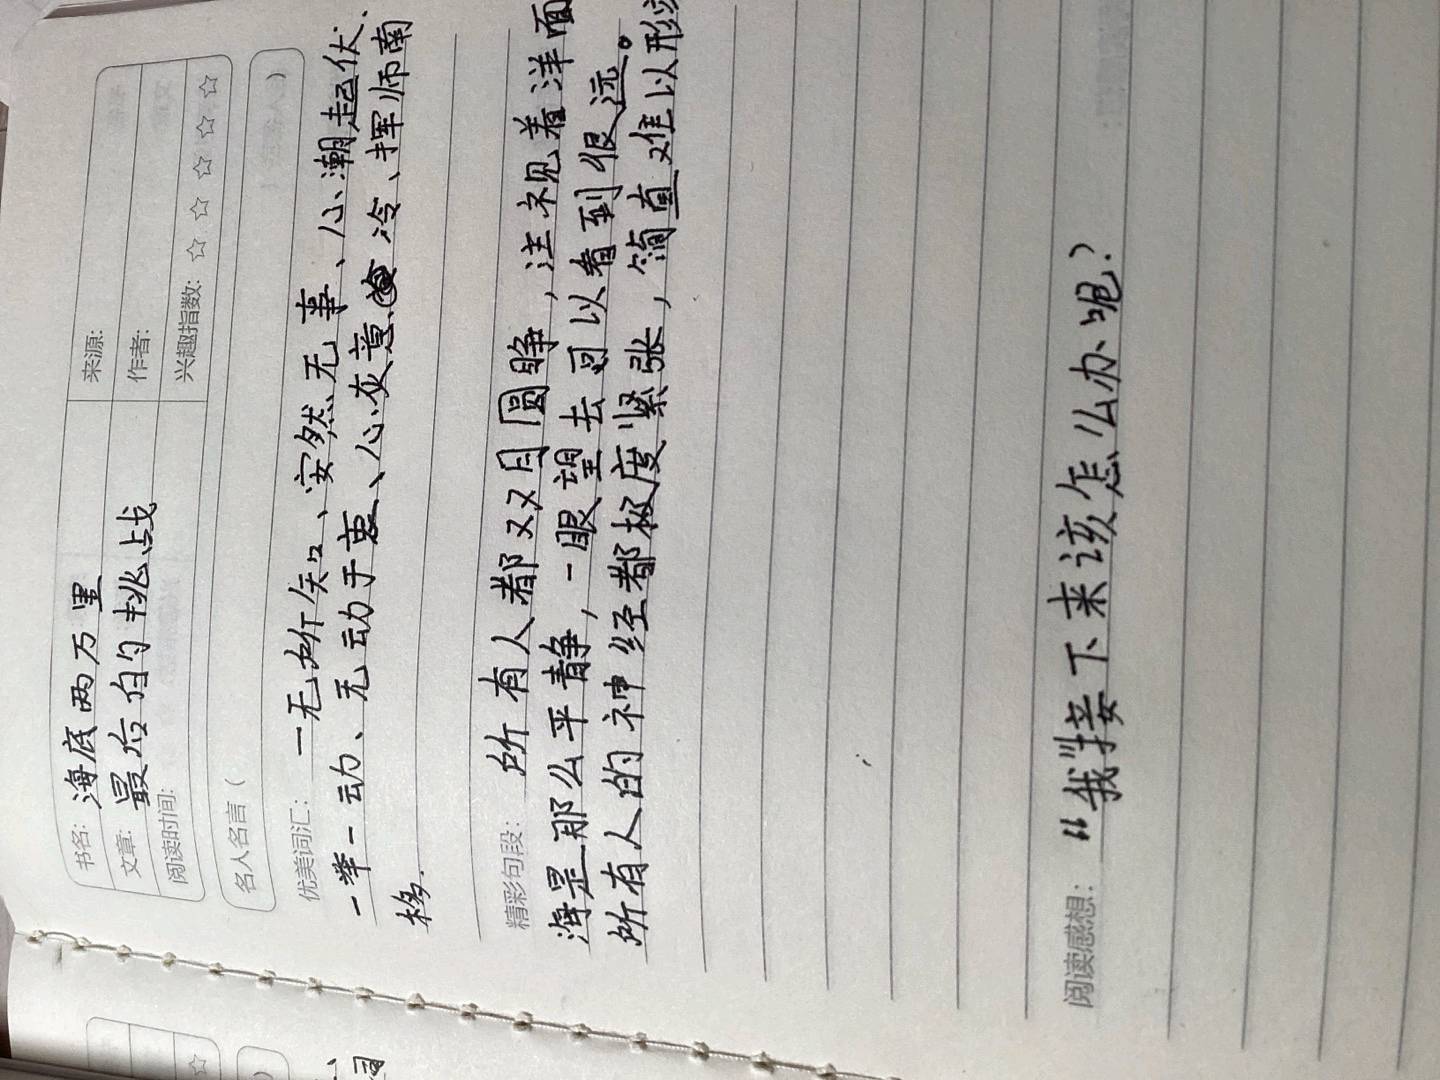 书名: 海底两万里 来源:
文章: 最后的挑战 作者:
阅读时间: 兴趣指数: ☆ ☆ ☆ ☆ ☆
名人名言 ( )
优美词汇: 一无所知、安然无事、心潮起伏.
一举一动、无动于衷、心灰意冷、挥师南
移.
精彩句段: 所有人都双目圆睁,注视着洋面
海是那么平静,一眼望去可以看到很远。
所有人的神经都极度紧张,简直难以形
阅读感想: “我”接下来该怎么办呢?